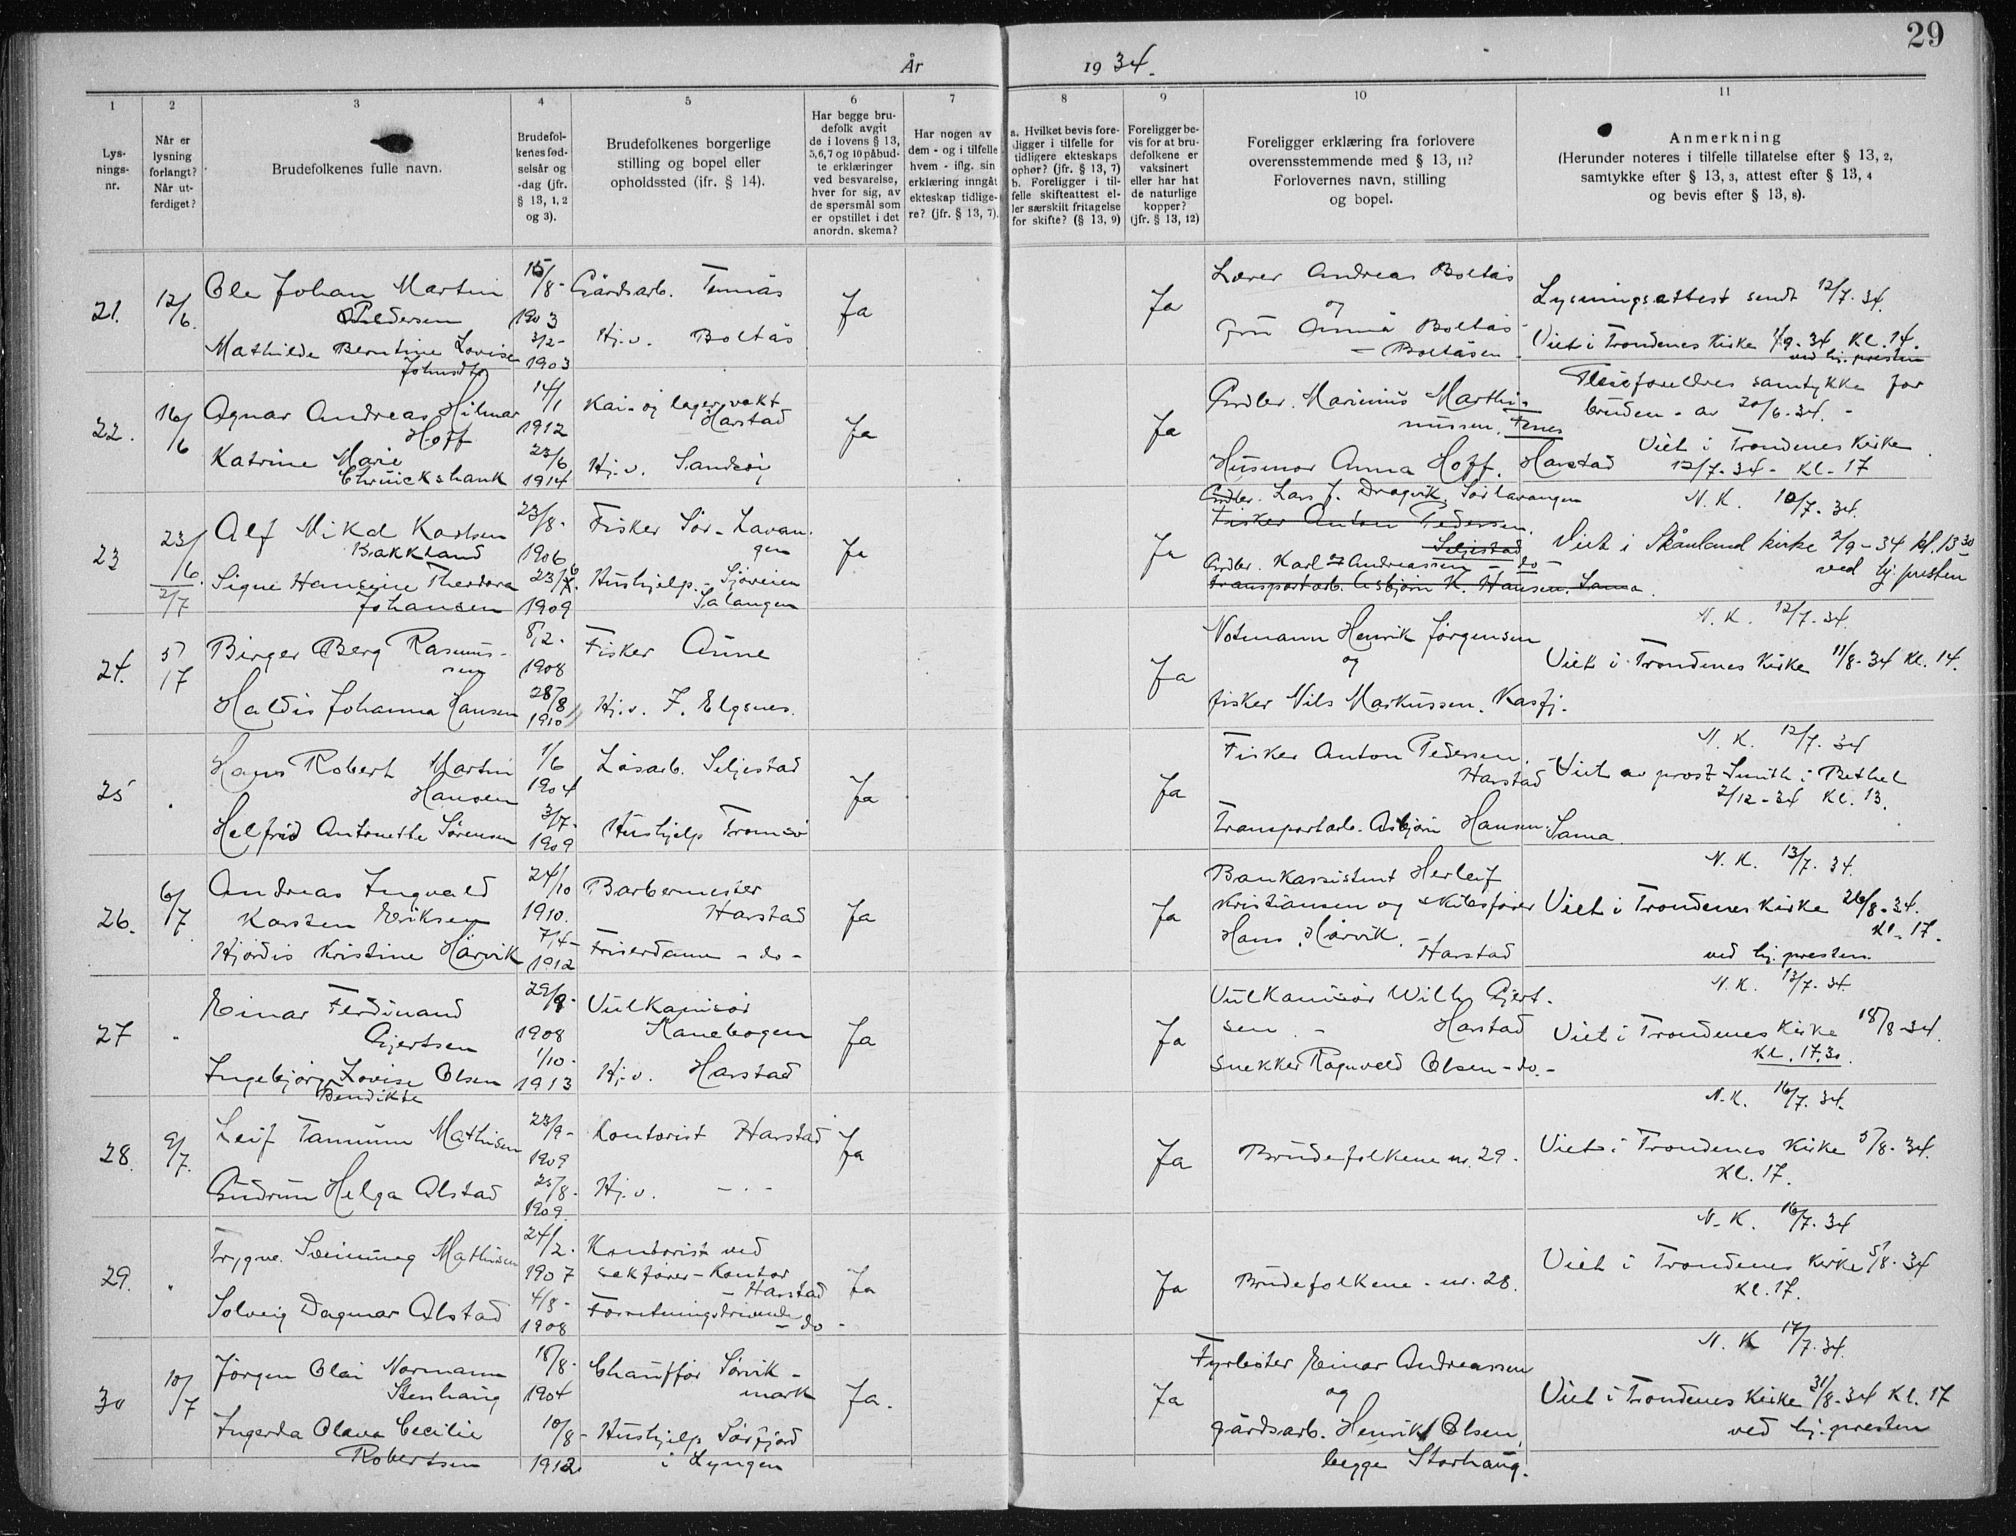 29
År 1934.
1 2 3 4 5 6 7 8 9 10 11
Lys-
nings-
nr.
Når er
lysning
forlangt?
Når ut-
ferdiget?
Brudefolkenes fulle navn.
Brudefol-
kenes fød-
selsår og
-dag (jfr.
§ 13, 1, 2
og 3).
Brudefolkenes borgerlige
stilling og bopel eller
opholdssted (jfr. § 14).
Har begge bru-
defolk avgit
de i lovens § 13,
5,6,7 og 10 påbud-
te erklæringer
ved besvarelse,
hver for sig, av
de spørsmål som
er opstillet i det
anordn. skema?
Har nogen av
dem - og i tilfelle
hvem - iflg. sin
erklæring inngåt
ekteskap tidlige-
re? (jfr. § 13, 7).
a. Hvilket bevis fore-
ligger i tilfelle for
tidligere ekteskaps
ophør? (jfr. § 13, 7)
b. Foreligger i til-
felle skifteattest el-
ler særskilt fritagelse
for skifte? (§ 13, 9)
Foreligger be-
vis for at bru-
defolkene er
vaksinert
eller har hat
de naturlige
kopper?
(jfr. § 13, 12)
Foreligger erklæring fra forlovere
overensstemmende med § 13, 11?
Forlovernes navn, stilling
og bopel.
Anmerkning
(Herunder noteres i tilfelle tillatelse efter § 13, 2,
samtykke efter § 13, 3, attest efter § 13, 4
og bevis efter § 13, 8).
21. 12/6.
Ole Johan Martin
Pedersen
15/8-
1903
Gårdsarb. Tennås
Mathilde Berntine Lovise
Johnsdtr
3/2-
1903
Hj.v. Boltås
Ja
Ja
Lærer Andreas Boltås
og
fru Anna Boltås
- Boltåsen
Lysningsattest sendt 12/7. 34.
Viet i Trondenes Kirke 1/9-34 Kl. 14.
ved hj. presten
22. 16/6
Agnar Andreas Hilmar
Hoff
14/1
1912
Kai- og lagervakt
Harstad
Katrine Marie
Chruickshank
23/6
1914
Hj.v. Sandsøy
Ja
Ja
Grdbr. Marinius Marthi-
nussen, Fenes
Husmor Anna Hoff, Harstad
Pleieforeldres samtykke for
bruden - av 20/6.34. -
Viet i Trondenes Kirke
12/7-34 - Kl. 17
23 23/6. 2/7
Alf Mikal Karlsen
Bakkland
23/8-
1906
Fisker Sør-Lavan-
gen
Signe Hansine Theodora
Johansen
23/6
1909
Hushjelp - Sjøveien
Salangen
Ja
Ja
Grdbr. Lars J. Dragvik, Sørlavangen
Fisker Anton Pedersen
Seljestad
Grdbr. Karl Andreassen - do -
Transportarb. Asbjørn K. Hansen. Sama.
N. K. 10/7. 34.
Viet i Skånland kirke 2/9-34 kl. 13 30
ved hj. presten
24. 5/7
Birger Berg Rasmus-
sen
8/2.
1908
Fisker Aune
Haldis Johanna Hansen
28/8
1910
Hj.v. F. Elgsnes.
Ja
Notmann Henrik Jørgensen
og
fisker Nils Markussen. Kasfj.
N. K. 12/7. 34.
Viet i Trondenes Kirke 11/8-34 Kl. 14.
25 "
Hans Robert Martin
Hansen
1/6
1904
Løsarb. Seljestad
Helfrid Antonette Sørensen
3/7-
1909
Hushjelp Tromsø
Ja
Ja
Fisker Anton Pedersen.
Harstad
Transportarb. Asbjørn Hansen. Sama
N. K. 12/7. 34
Viet av prost Smith i Bethel
2/12-34 Kl. 13.
26. 6/7
Andreas Ingvald
Karsten Eriksen
24/10
1910.
Barbermester
Harstad
Hjørdis Kristine Hårvik
7/4-
1912
Friserdame - do -
Ja
Ja
Bankassistent Herleif
Kristiansen og skibsfører
Hans Hårvik.
Harstad
N. K. 13/7. 34.
Viet i Trondenes Kirke 26/8-34.
Kl. 17.
ved hj. presten.
27 "
Einar Ferdinand
Gjertsen
29/8-
1908
Vulkanisør
Kanebogen
Ingebjørg Lovise Olsen
Bendikte
1/10-
1913
Hj.v. Harstad
Ja
Ja
Vulkanisør Wilh. Gjert-
sen - Harstad
Snekker Ragnvald Olsen - do. -
N. K. 13/7. 34.
Viet i Trondenes Kirke 18/8-34.
Kl. 17,30.
28. 9/7.
Leif Tannum Mathisen
23/9-
1909
Kontorist Harstad
Gudrun Helga Alstad
25/8-
1909.
Hj.v. - " -
Ja
Ja
Brudefolkene nr. 29.
N. K. 16/7. 34.
Viet i Trondenes Kirke 5/8-34.
Kl. 17.
29. "
Trygve Sveinung Mathisen
24/2.
1907
Kontorist ved
sakfører-kontor
- Harstad
Solveig Dagmar Alstad
4/8-
1908
Forretningsdrivende
- do -
Ja
Ja
Brudefolkene - nr. 28.
N. K. 16/7. 34
Viet i Trondenes Kirke 5/8-34
Kl. 17.
30 10/7
Jørgen Olai Normann
Stenhaug
18/8-
1904
Chauffør Sørvik-
mark
Ingerda Olava Cecilie
Robertsen
10/8-
1912
Hushjelp Sørfjord
i Lyngen
Ja.
Ja
Fyrbøter Einar Andreassen
og
gårdsarb. Henrik Olsen,
begge Storhaug.
N. K. 17/7. 34.
Viet i Trondenes Kirke 31/8-34 Kl. 17
ved hj. presten